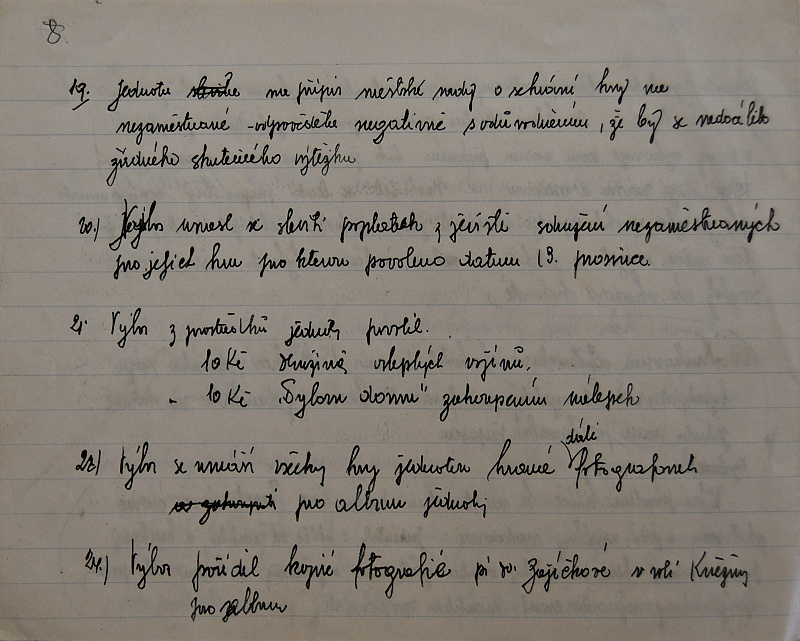 8.
19. Jednota na přípis městské rady o sehrání hry na
nezaměstnané - odpověděla negativně s odůvodněním, že by se nedocílilo
žádného skutečného výtěžku
20.) Výbor usnesl se slevit poplatek z jeviště sdružení nezaměstnaných
pro jejich hru pro kterou povoleno datum 13. prosince.
21. Výbor z prostředků jednoty povolil.
10 Kč družině oslepených vojínů.
- 10 Kč "Sylvum domu" zakoupením nálepek
22.) Výbor se usnáší všechny hry jednotou hrané dáti fotografovati
pro album jednoty
24.) Výbor pořídil kopie fotografie pí Zajíčkové v roli Kněžny
pro album